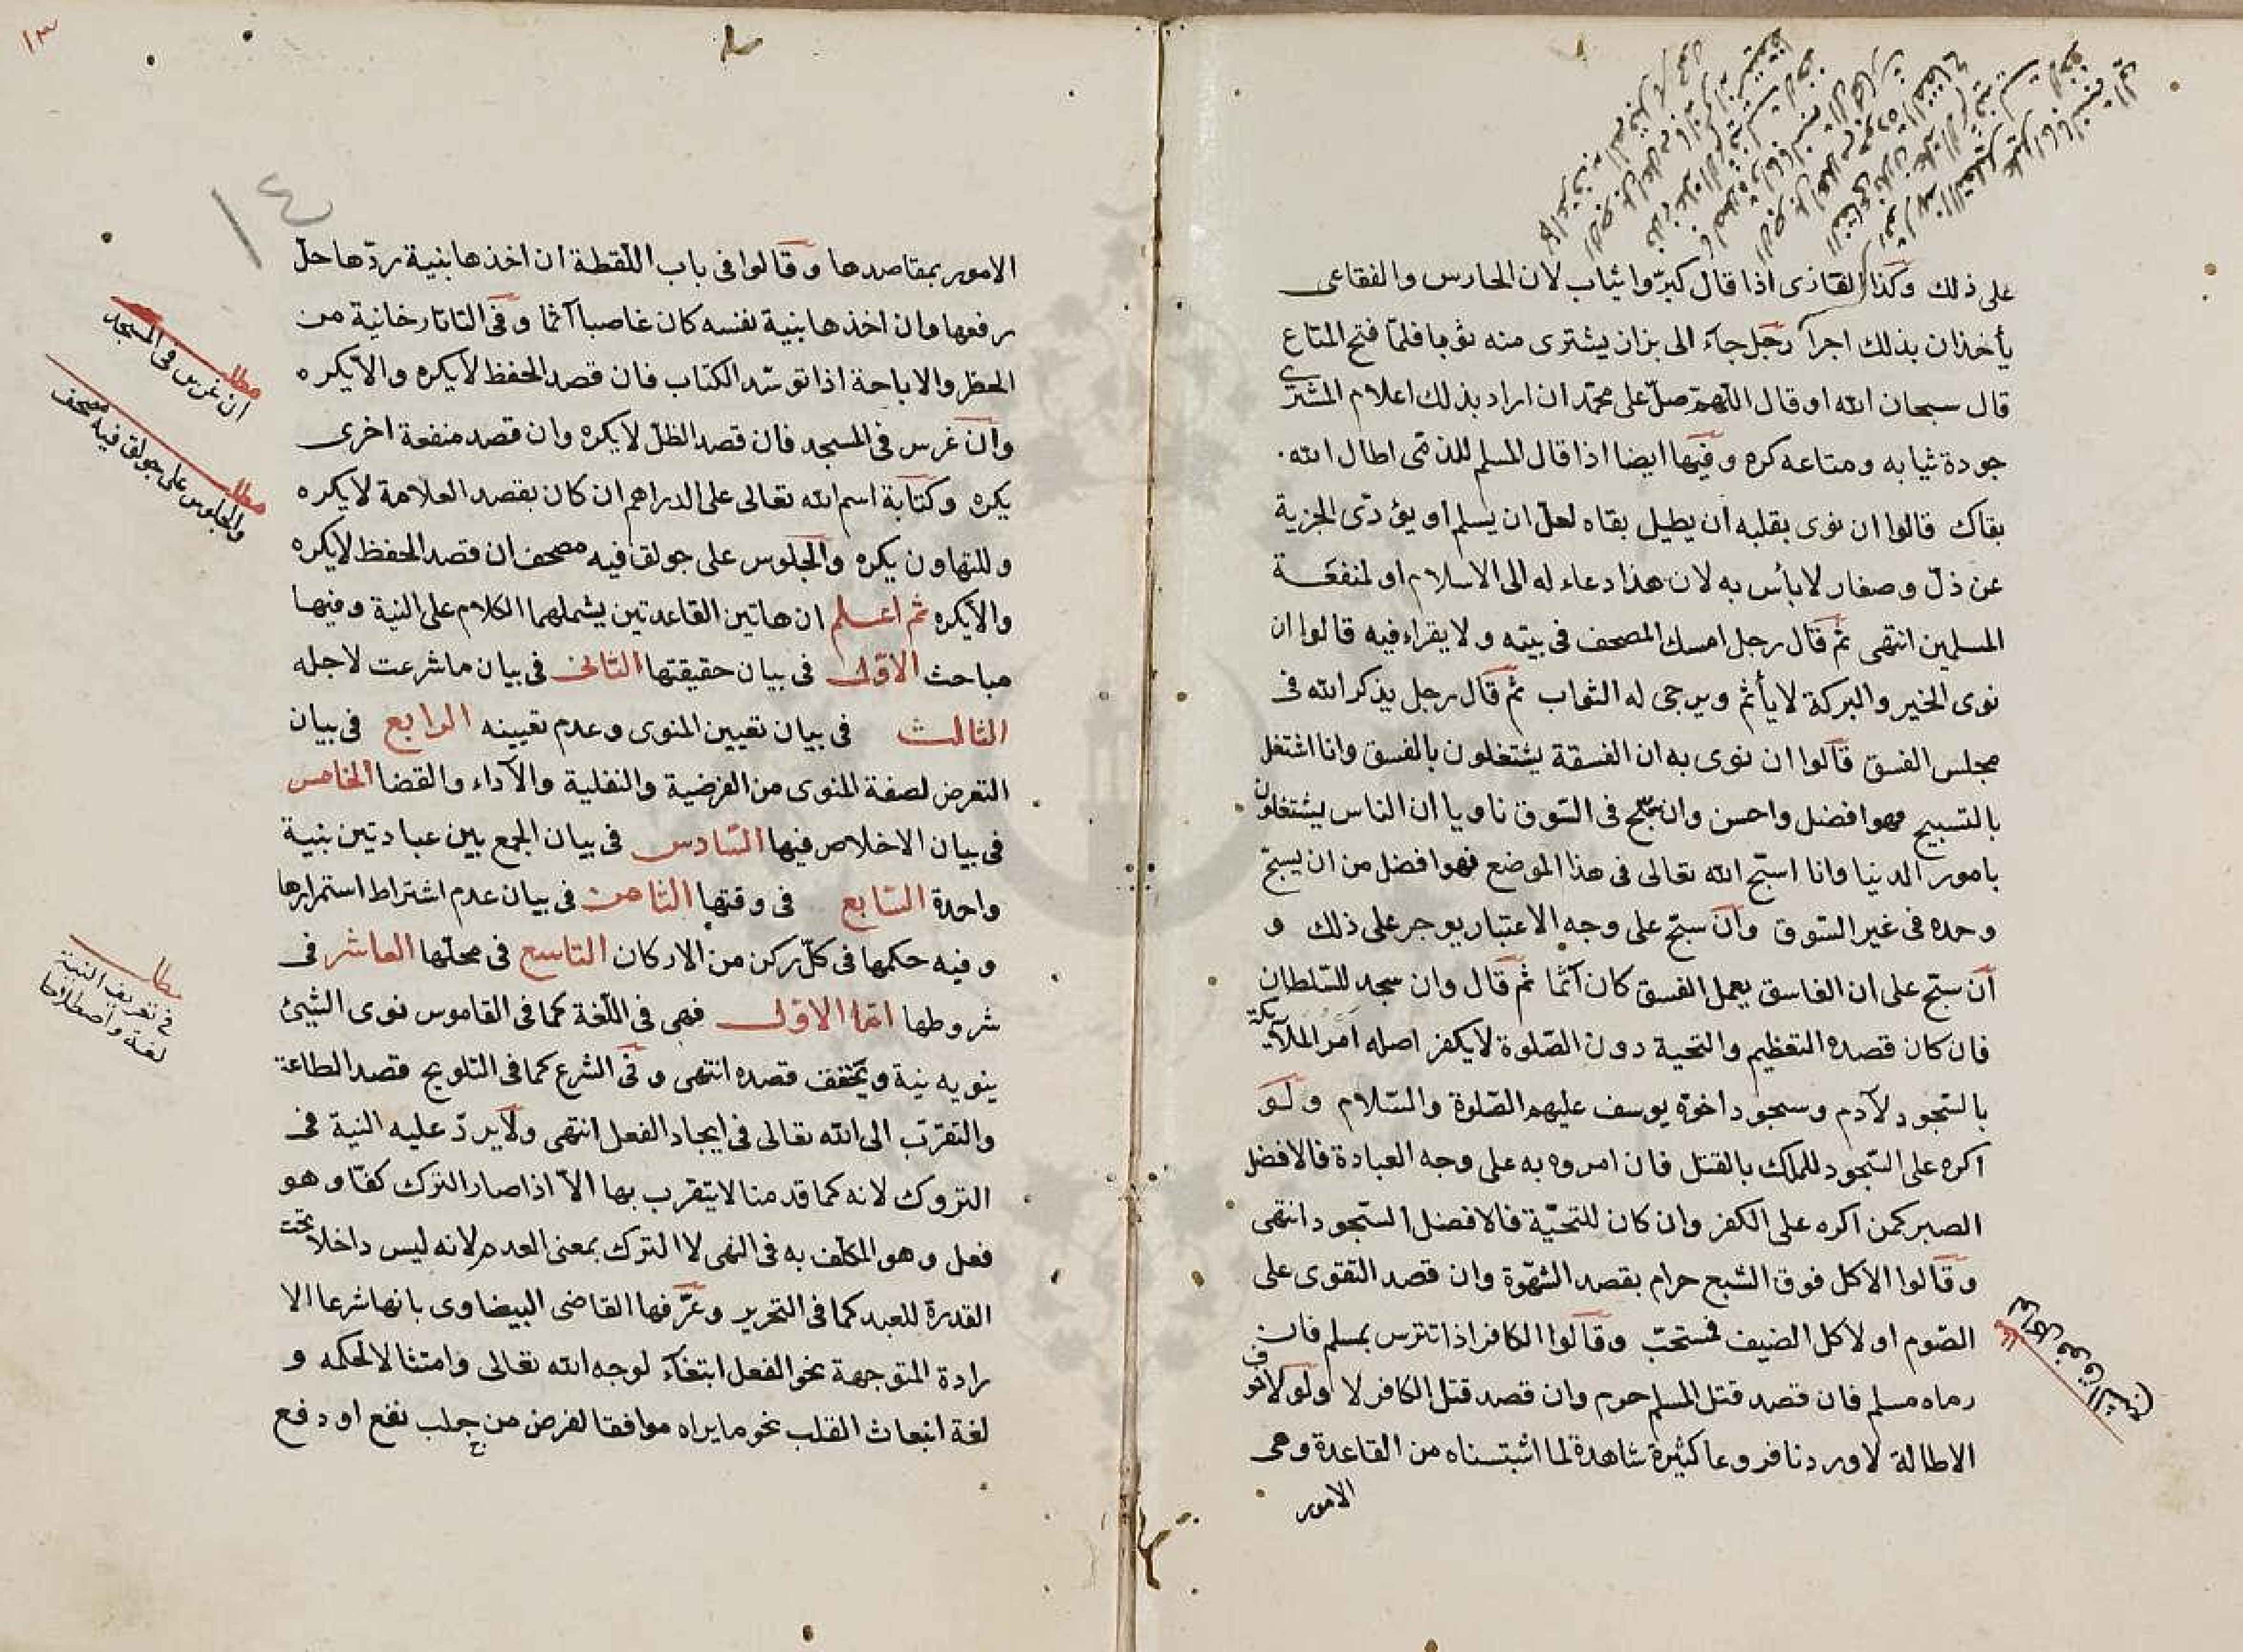 على ذلك وكذا القازى اذا قال كبّروا يثاب لان الحارس والفقاعى
يأخذان بذلك اجرا رجل جاء الى بزاز يشترى منه ثوبا فلمّا فتح المتاع
قال سبحان الله او قال اللهمّ صلّ على محمّد ان اراد بذلك اعلام المشترى
جودة ثيابه ومتاعه كره وفيها ايضا اذا قال المسلم للذمّى اطال الله
بقاك قالوا ان نوى بقلبه ان يطيل بقاه لعلّ ان يسلم او يؤدّى الجزية
عن ذلّ وصغار لا بأس به لان هذا دعاء له الى الاسلام او لمنفعة
المسلمين انتهى ثم قال رجل امسك المصحف فى بيته ولا يقراء فيه قالوا ان
نوى الخير والبركة لا يأثم ويرجى له الثواب ثم قال رجل يذكر الله فى
مجلس الفسق قالوا ان نوى به ان الفسقة يشتغلون بالفسق وانا اشتغل
بالتسبيح فهو افضل واحسن وان سبّح فى السّوق ناويا ان الناس يشتغلون
بامور الدنيا وانا اسبّح الله تعالى فى هذا الموضع فهو افضل من ان يسبّح
وحده فى غير السّوق وان سبّح على وجه الاعتبار يوجر على ذلك و
أن سبّح على ان الفاسق يعمل الفسق كان آثما ثم قال وان سجد للسّلطان
فان كان قصده التعظيم والتحية دون الصّلوة لا يكفر اصله امر الملآيكة
بالسّجود لآدم وسجود اخوة يوسف عليهم الصّلوة والسّلام ولو
اكره على السّجود للملك بالقتل فان امروه به على وجه العبادة فالافضل
الصبر كمن اكره على الكفر وان كان للتحيّة فالافضل السّجود انتهى
وقالوا الاكل فوق الشبع حرام بقصد الشهوة وان قصد التقوى على
الصّوم او لاكل الضيف فمستحبّ وقالوا الكافر اذا تترّس بمسلم فان
رماه مسلم فان قصد قتل المسلم حرم وان قصد قتل الكافر لا ولولا خوف
الاطالة لاوردنا فروعا كثيرة شاهدة لما اثبتسناه من القاعدة وهى
الامور
١٣
١٤
الامور بمقاصدها وقالوا فى باب اللقطة ان اخذها بنية ردّها حلّ
رفعها وان اخذها بنية نفسه كان غاصبا آثما وفى التاتارخانية من
الحظر والاباحة اذا توسّد الكتاب فان قصد الحفظ لا يكره والا يكره
وان غرس فى المسجد فان قصد الظلّ لا يكره وان قصد منفعة اخرى
يكره وكتابة اسم الله تعالى على الدراهم ان كان بقصد العلامة لا يكره
وللتهاون يكره والجلوس على جولق فيه مصحف ان قصد الحفظ لا يكره
والا يكره ثم اعلم ان هاتين القاعدتين يشملهما الكلام على النية وفيها
مباحث الاوّل فى بيان حقيقتها الثانى فى بيان ما شرعت لاجله
الثالث فى بيان تعيين المنوى وعدم تعيينه الرابع فى بيان
التعرض لصفة المنوى من الفرضية والنفلية والآداء والقضا الخامس
فى بيان الاخلاص فيها السّادس فى بيان الجمع بين عبادتين بنية
واحدة السّابع فى وقتها الثامن فى بيان عدم اشتراط استمرارها
وفيه حكمها فى كلّ ركن من الاركان التاسع فى محلّها العاشر فى
شروطها امّا الاوّل فهى فى اللّغة كما فى القاموس نوى الشيئ
ينويه نية ويخفف قصده انتهى وفى الشرع كما فى التلويح قصد الطاعة
والتقرّب الى الله تعالى فى ايجاد الفعل انتهى ولا يردّ عليه النية فى
التروك لانه كما قدمنا لا يتقرب بها الّا اذا صار الترك كفّا وهو
فعل وهو المكلف به فى النهى لا الترك بمعنى العدم لانه ليس داخلا تحت
القدرة للعبد كما فى التحرير وعرّفها القاضى البيضاوى بانها شرعا الا
رادة المتوجهة نحو الفعل ابتغآء لوجه الله تعالى وامتثالا لحكمه و
لغة انبعاث القلب نحو ما يراه موافقا لغرض من جلب نفع او دفع
مطلب
ان غرس فى المسجد
مطلب
والجلوس على جولق فيه مصحف
مطلب
فى تعريف النية
لغة واصطلاحا